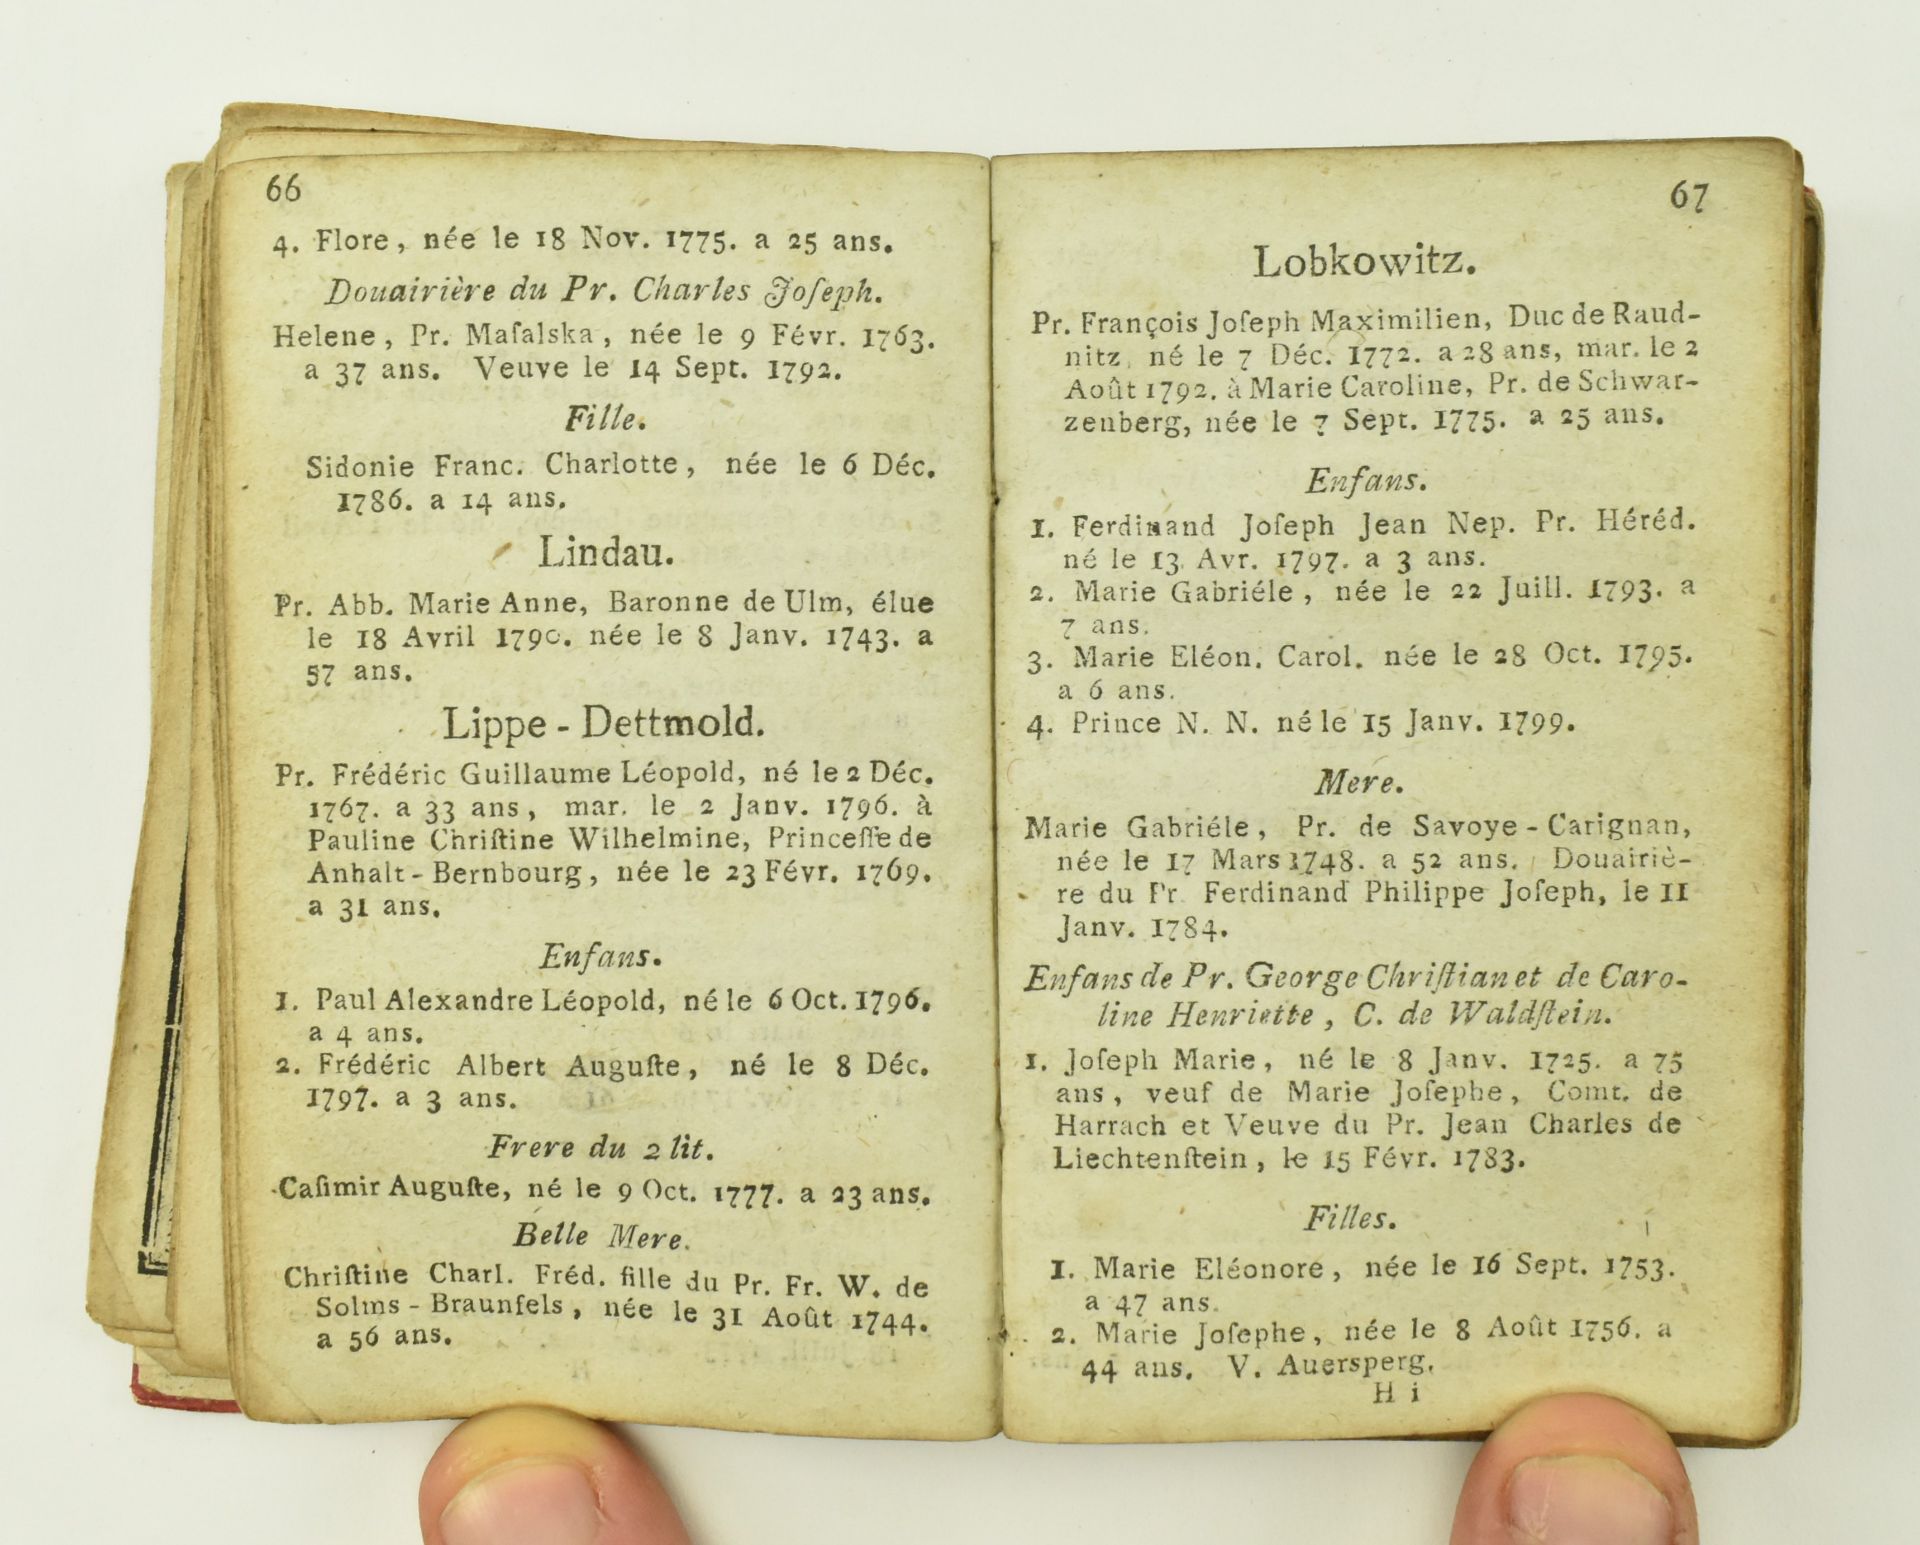 66
4. Flore, née le 18 Nov. 1775. a 25 ans.
Douairière du Pr. Charles Joſeph.
Helene, Pr. Maſalska, née le 9 Févr. 1763.
a 37 ans. Veuve le 14 Sept. 1792.
Fille.
Sidonie Franc. Charlotte, née le 6 Déc.
1786. a 14 ans.
Lindau.
Pr. Abb. Marie Anne, Baronne de Ulm, élue
le 18 Avril 1790. née le 8 Janv. 1743. a
57 ans.
Lippe - Dettmold.
Pr. Frédéric Guillaume Léopold, né le 2 Déc.
1767. a 33 ans, mar. le 2 Janv. 1796. à
Pauline Chriſtine Wilhelmine, Princeſſe de
Anhalt - Bernbourg, née le 23 Févr. 1769.
a 31 ans.
Enfans.
1. Paul Alexandre Léopold, né le 6 Oct. 1796.
a 4 ans.
2. Frédéric Albert Auguſte, né le 8 Déc.
1797. a 3 ans.
Frere du 2 lit.
Caſimir Auguſte, né le 9 Oct. 1777. a 23 ans.
Belle Mere.
Chriſtine Charl. Fréd. fille du Pr. Fr. W. de
Solms - Braunfels, née le 31 Août 1744.
a 56 ans.
67
Lobkowitz.
Pr. François Joſeph Maximilien, Duc de Raud-
nitz, né le 7 Déc. 1772. a 28 ans, mar. le 2
Août 1792. à Marie Caroline, Pr. de Schwar-
zenberg, née le 7 Sept. 1775. a 25 ans.
Enfans.
1. Ferdinand Joſeph Jean Nep. Pr. Héréd.
né le 13. Avr. 1797. a 3 ans.
2. Marie Gabriéle, née le 22 Juill. 1793. a
7 ans.
3. Marie Eléon. Carol. née le 28 Oct. 1795.
a 6 ans.
4. Prince N. N. né le 15 Janv. 1799.
Mere.
Marie Gabriéle, Pr. de Savoye - Carignan,
née le 17 Mars 1748. a 52 ans. Douairiè-
re du Pr. Ferdinand Philippe Joſeph, le 11
Janv. 1784.
Enfans de Pr. George Chriſtian et de Caro-
line Henriette, C. de Waldſtein.
1. Joſeph Marie, né le 8 Janv. 1725. a 75
ans, veuf de Marie Joſephe, Comt. de
Harrach et Veuve du Pr. Jean Charles de
Liechtenſtein, le 15 Févr. 1783.
Filles.
1. Marie Eléonore, née le 16 Sept. 1753.
a 47 ans.
2. Marie Joſephe, née le 8 Août 1756. a
44 ans. V. Auersperg.
H i